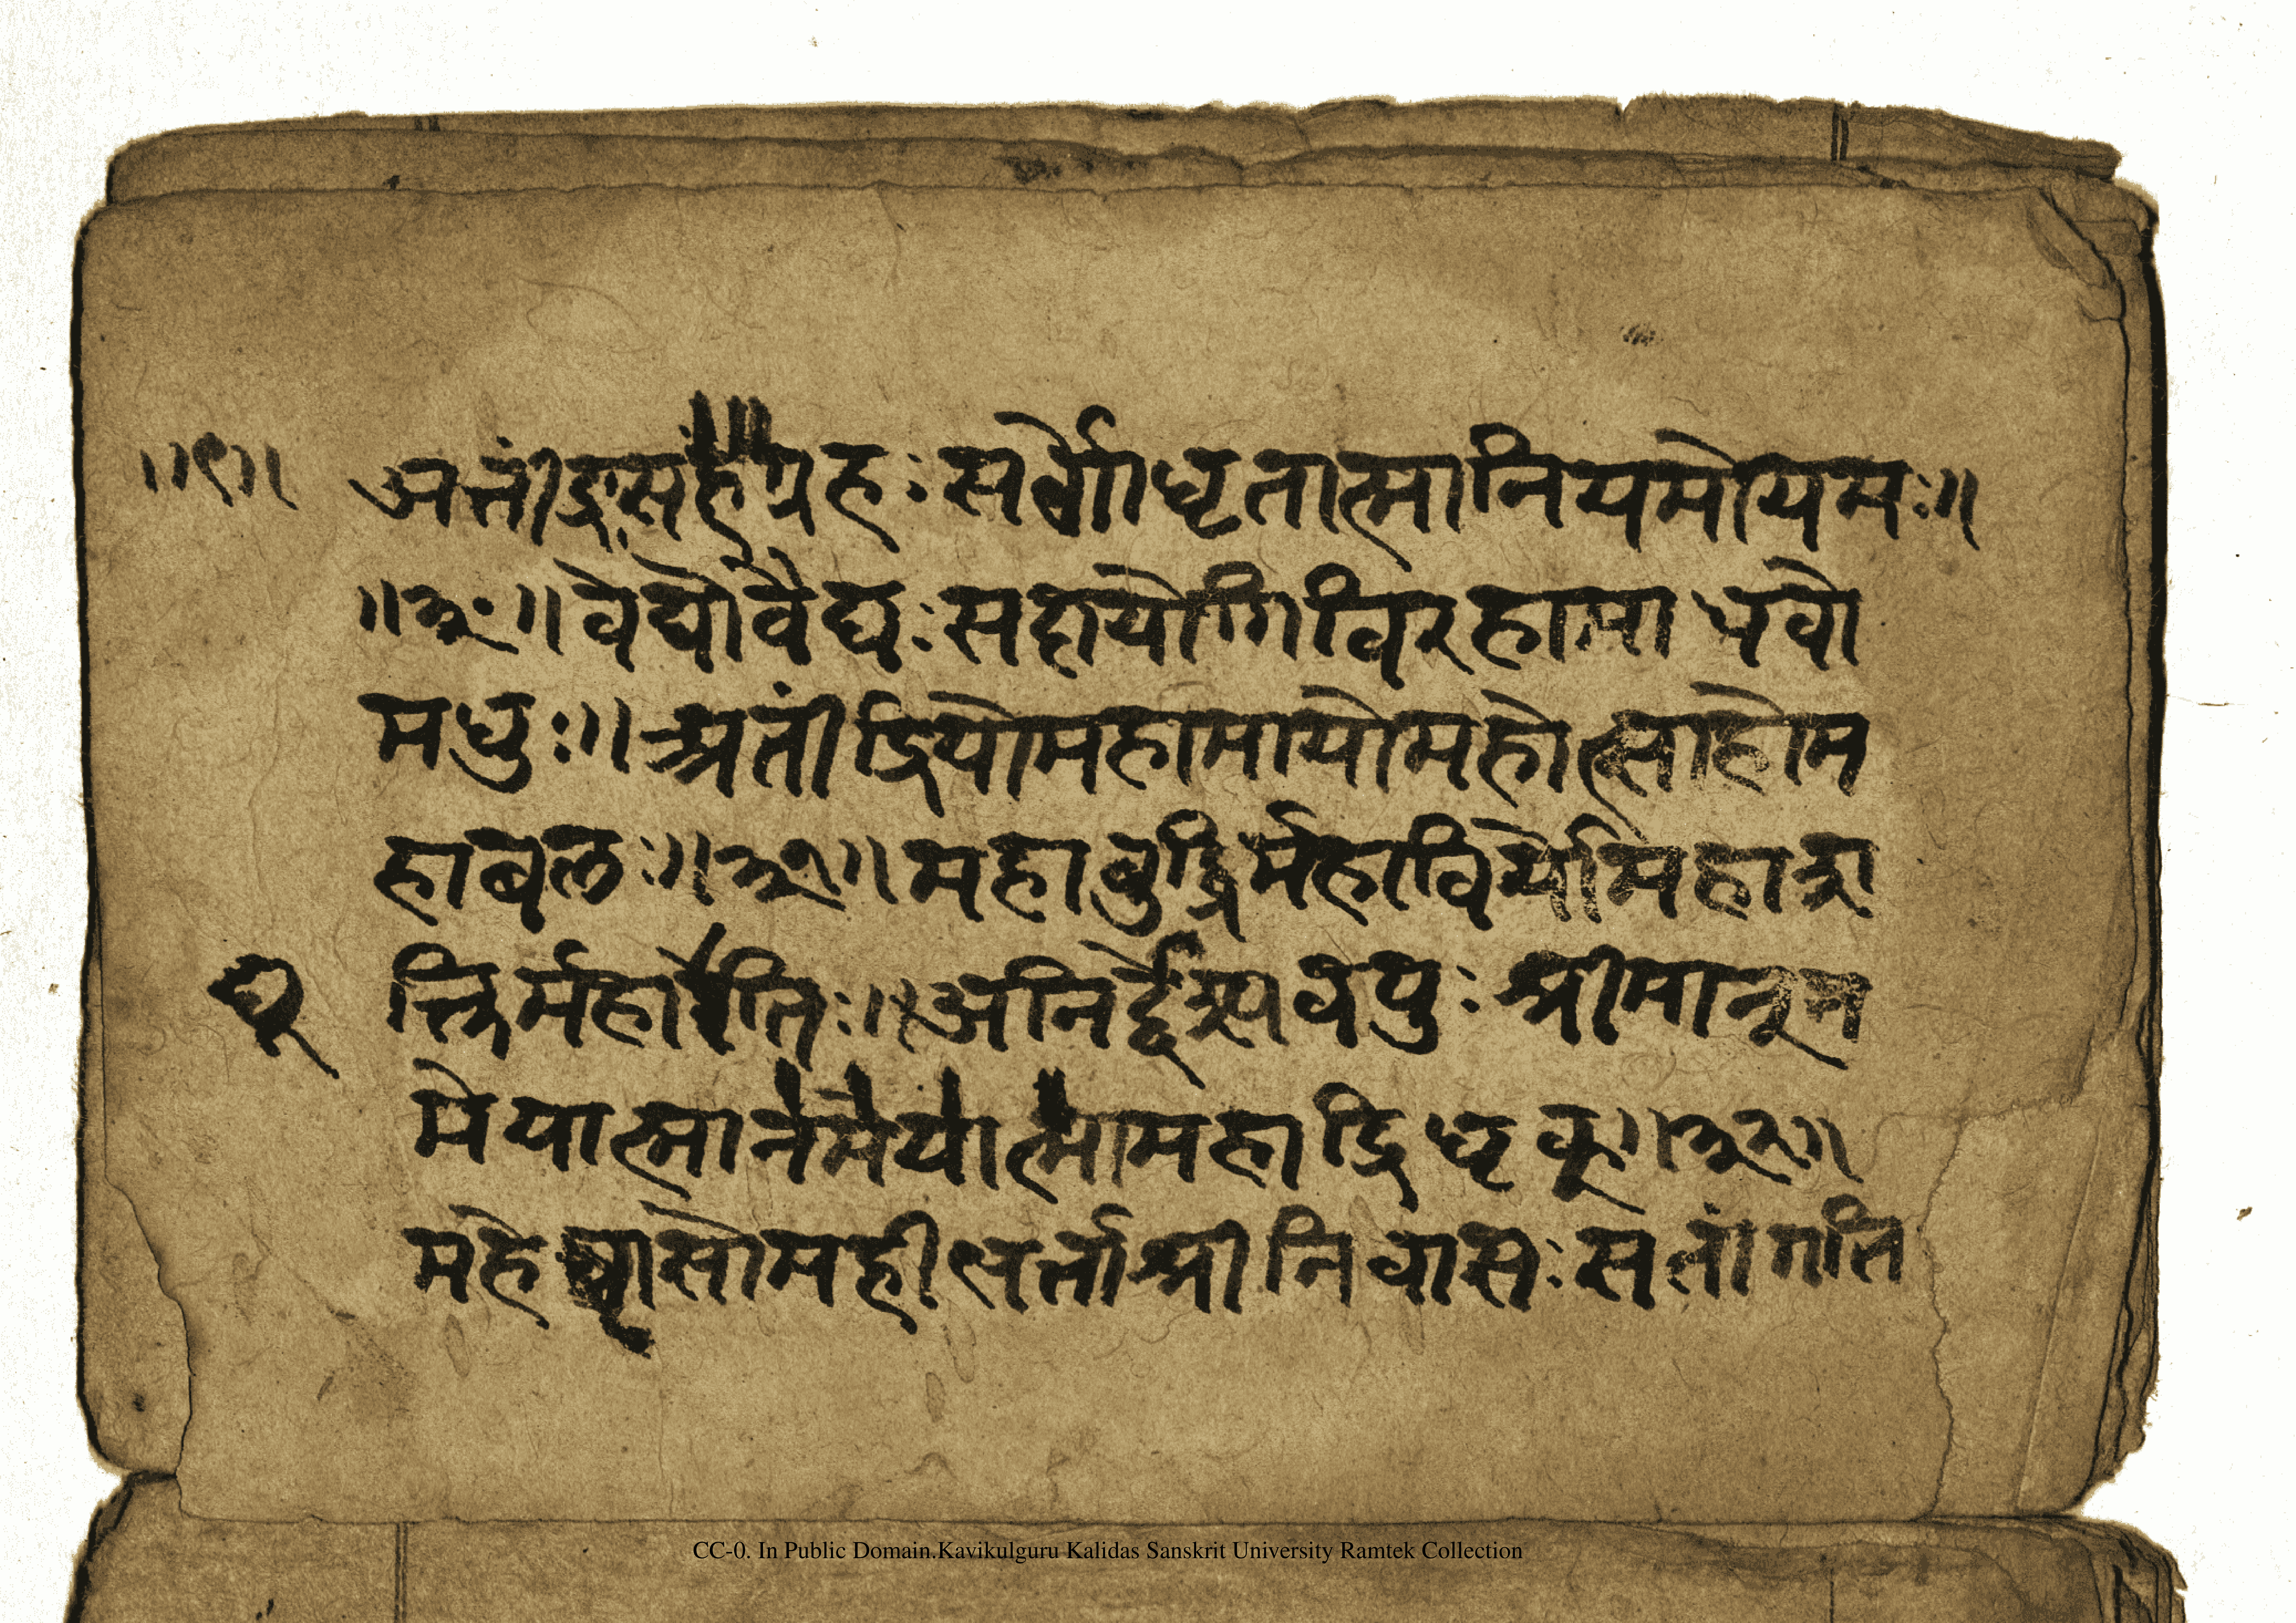 ॥९॥ अतींद्रसहंग्रहः सर्वोगाधृतात्मानियमोयमः॥
॥३०॥ वेद्यो वैद्यः सदायोगि विरहामाधवो
मधुः॥ अतींद्रियो महामायो महोत्साहो म
हाबलः॥३१॥ महाबुद्धिर्महाविर्यो महाश
क्तिर्महा तिः॥ अनिर्द्देश्यवपुः श्रीमान्म
मेयात्मानमेयात्मामहाद्रिधृक्॥३२॥
महेष्वासो महीभर्ता श्रीनिवासः सतां गति
CC-0. In Public Domain.Kavikulguru Kalidas Sanskrit University Ramtek Collection